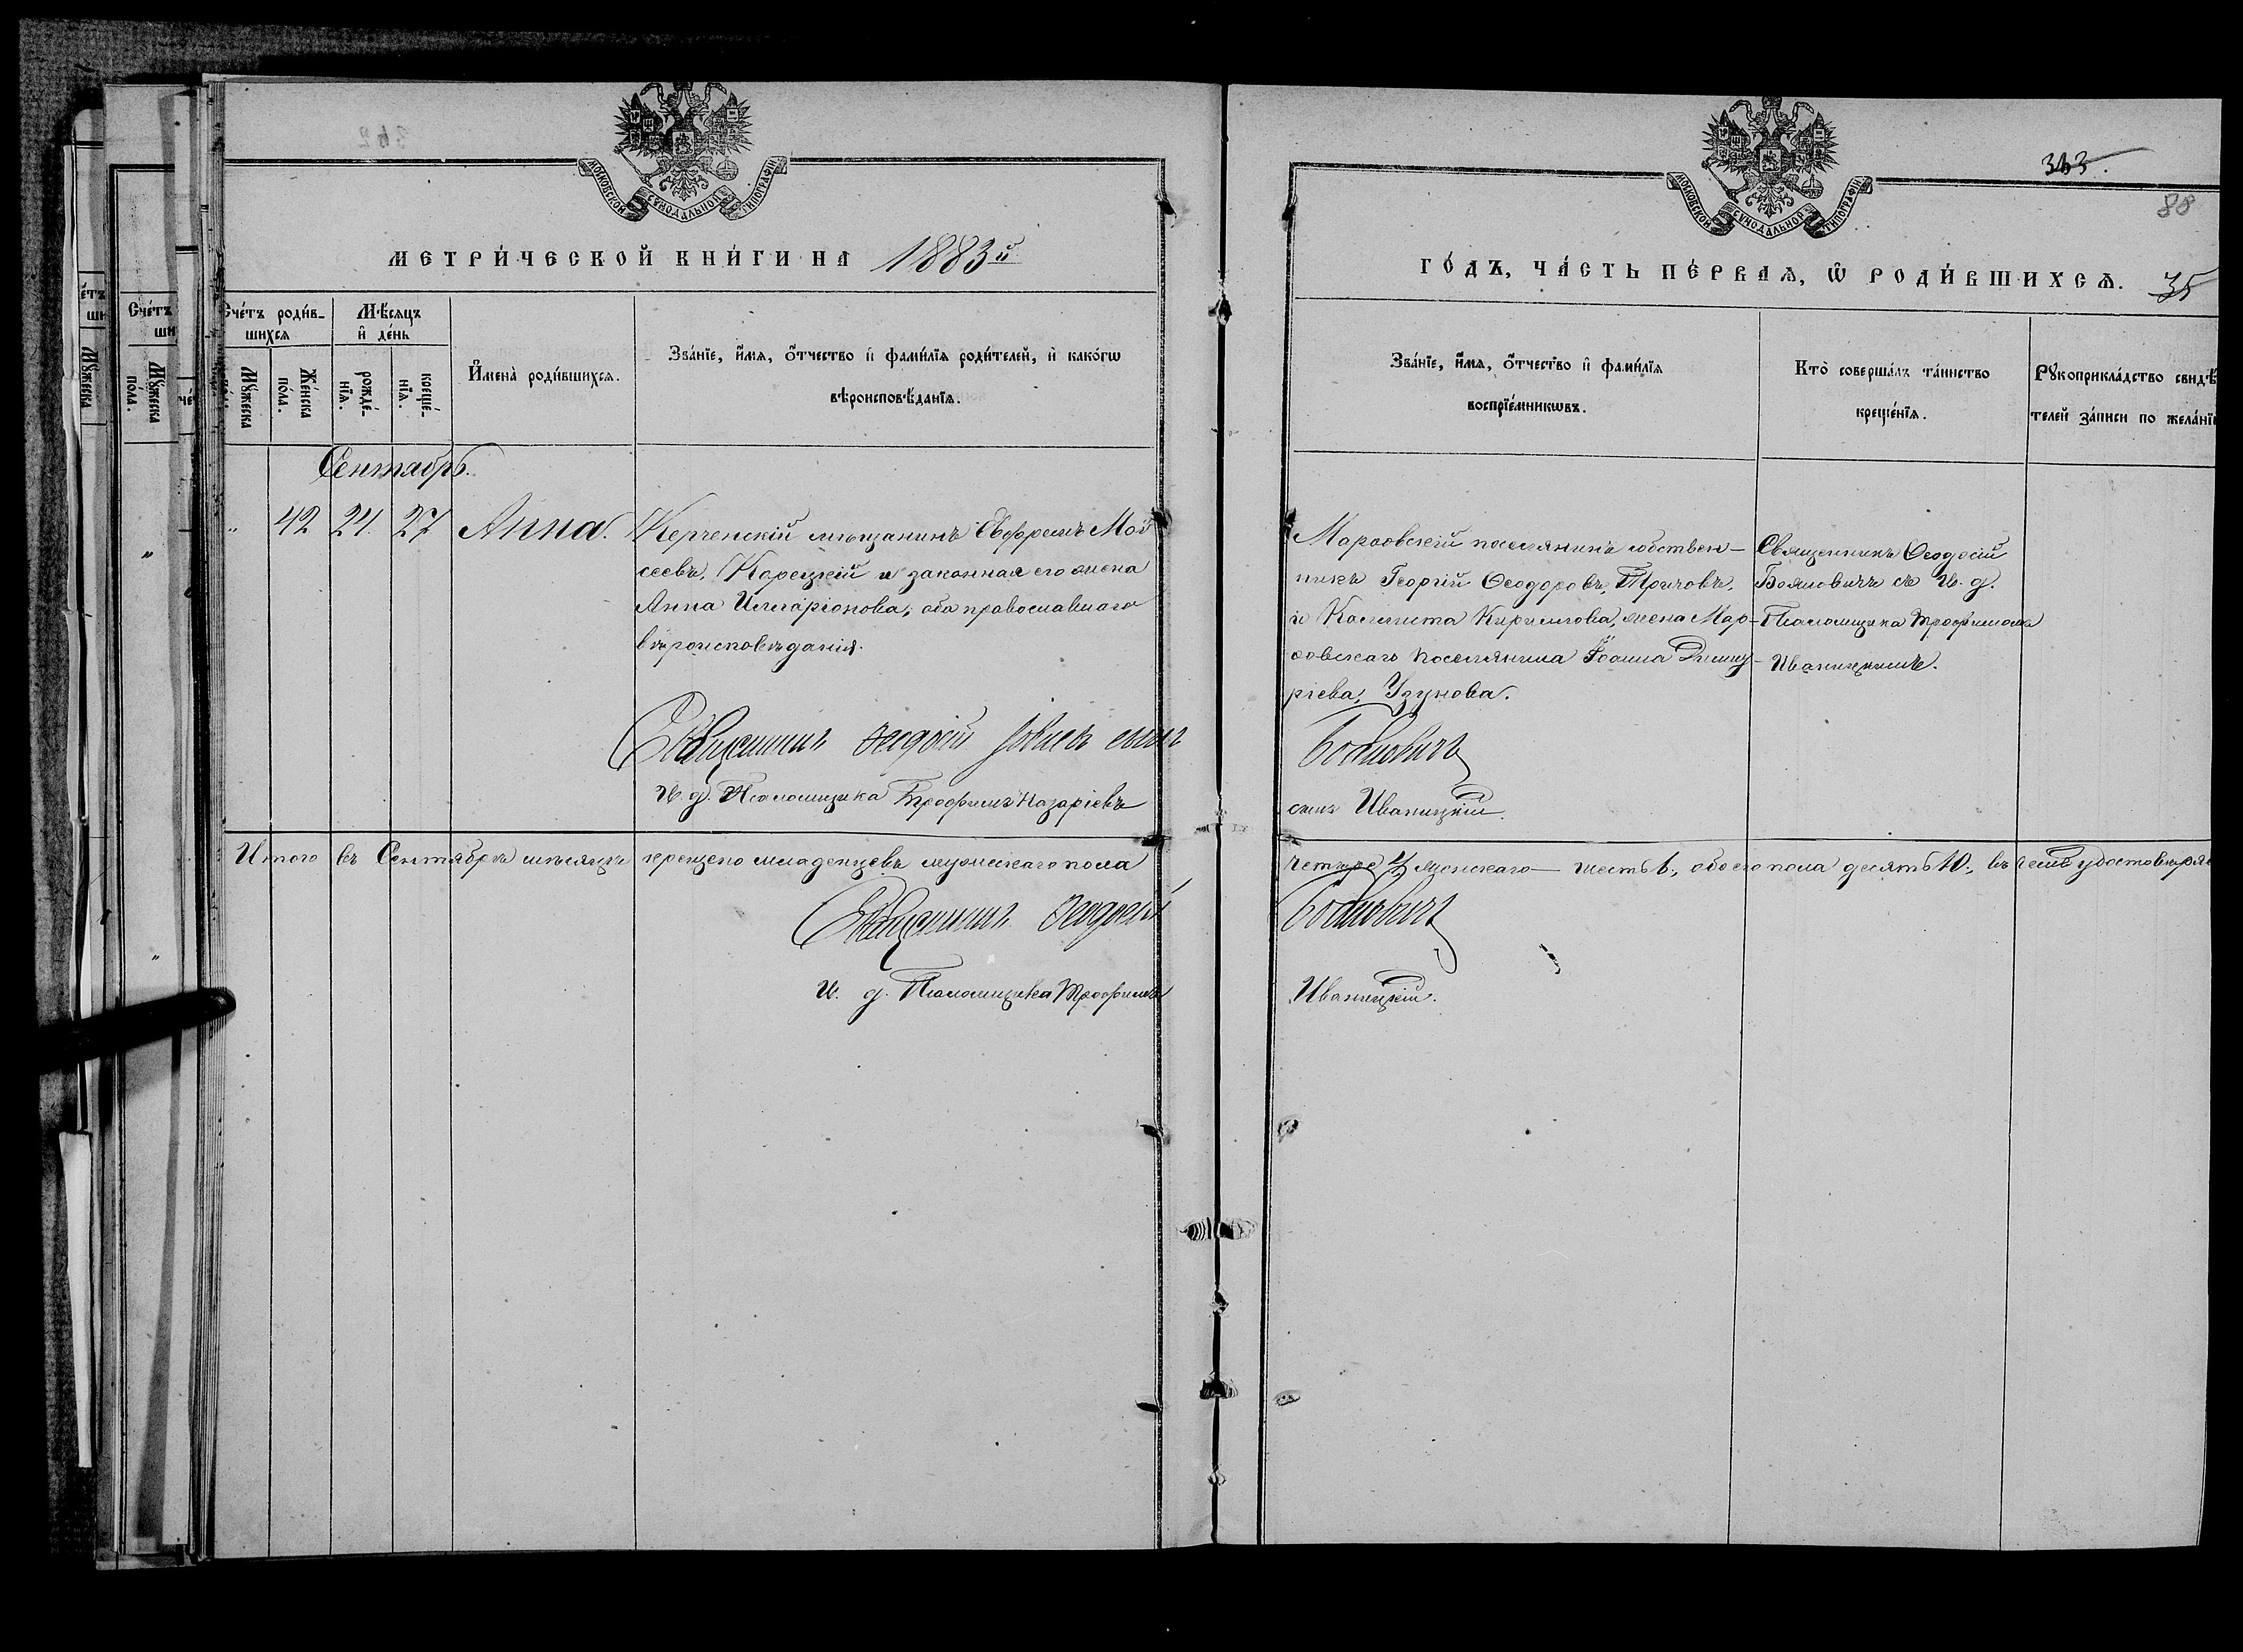 362
МОСКОВСКОЙ СѴНОДАЛЬНОЙ ТИПОГРАФІИ
МЕТРИ́ЧЕСКОЙ КНИ́ГИ НА 1883й
Сче́тъ роди́в-
шихся
Мѣ́сяцъ
и҆ де́нь
Мꙋ́жеска
по́ла.
Же́нска
по́ла.
рожде́-
нїѧ.
креще́-
нїѧ.
И҆мена̀ роди́вшихсѧ.
Зва́нїе, и҆́мѧ, ѻ҆́тчество и҆ фами́лїѧ роди́телей, и҆ како́гѡ
вѣроисповѣ́данїѧ.
Сентябрь.
„ 42 24 27 Анна.
Керченскій мѣщанинъ Евфремъ Мой
сеевъ, Карецкій и законная его жена
Анна Илларіонова, оба православнаго
вѣроисповѣданія.
Священникъ Ѳеодосій
И. д. Псаломщика Трофимъ Назаріевъ
Итого въ Сентябрѣ мѣсяцѣ крещено младенцевъ мужескаго пола
Священникъ Ѳеодосій
И. д. Псаломщика Трофимъ
МОСКОВСКОЙ СѴНОДАЛЬНОЙ ТИПОГРАФІИ
363.
88
ГО́ДЪ, ЧА́СТЬ ПЕ́РВАѦ, Ѽ РОДИ́ВШИХСѦ. 35
Зва́нїе, и҆́мѧ, ѻ҆́тчество и҆ фами́лїѧ
воспрїе́мникѡвъ.
Кто̀ соверша́лъ та́инство
креще́нїѧ.
Рꙋкоприкла́дство свидѣ́
телей за́писи по жела́нї
поселянинъ собствен-
никъ Георгій Ѳеодоровъ,
и Каллиста Кириллова, жена Мар-
поселянина Іоанна Димит-
ріева, Узунова.
Священникъ Ѳеодосій
Боямовичъ съ И. д.
Псаломщика Трофимомъ
Иваницкимъ.
Боямовичъ
сынъ Иваницкій.
четыре 4, женскаго — шесть 6., обоего пола десять 10., въ чемъ удостовѣряе
Боямовичъ
Иваницкій.